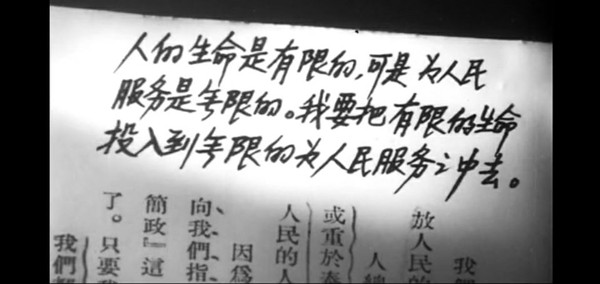 人的生命是有限的,可是为人民
服务是无限的。我要把有限的生命
投入到无限的为人民服务之中去。
我們
放人民的
人總
或重於泰
人民的人
因爲
向我們指
簡政』這
了。只要我
我們都